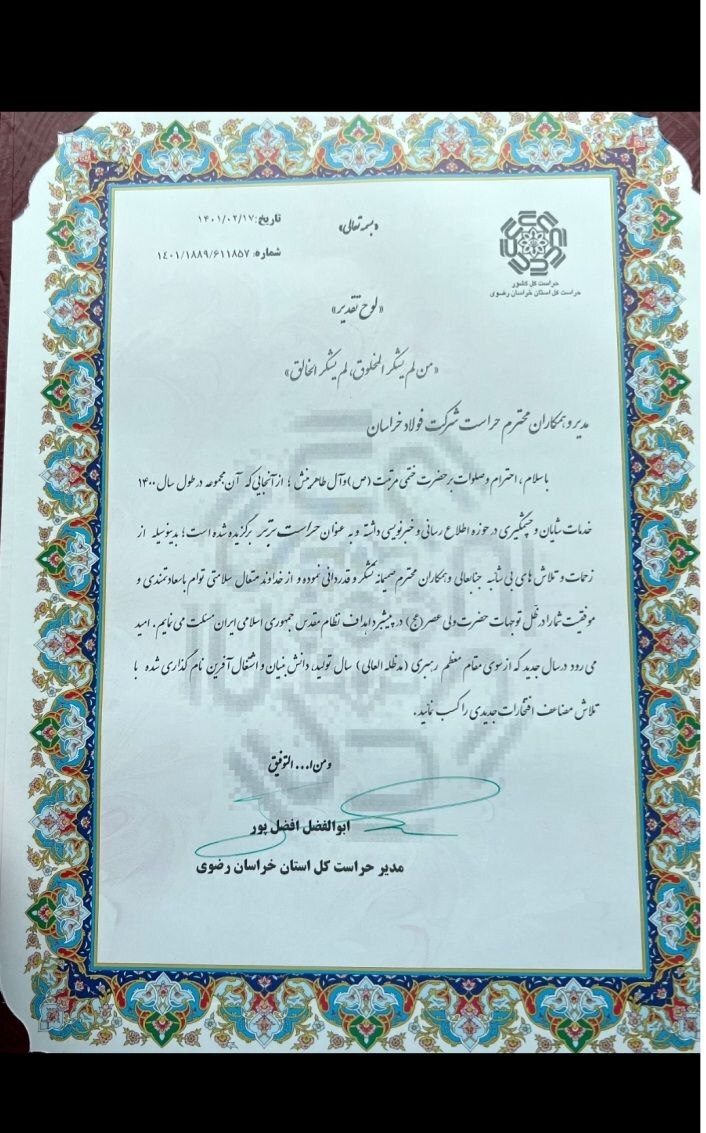 «بسمه تعالی»
تاریخ: ۱۴۰۱/۰۲/۱۷
شماره: ۱۴۰۱/۱۸۸۹/۶۱۱۸۵۷
حراست کل کشور
حراست کل استان خراسان رضوی
«لوح تقدیر»
«من لم یشکر المخلوق، لم یشکر الخالق»
مدیر و همکاران محترم حراست شرکت فولاد خراسان
با سلام، احترام و صلوات بر حضرت ختمی مرتبت (ص) و آل طاهرینش ؛ از آنجایی که آن مجموعه در طول سال ۱۴۰۰
خدمات شایان و چشمگیری در حوزه اطلاع رسانی و خبرنویسی داشته و به عنوان حراست برتر برگزیده شده است؛ بدینوسیله از
زحمات و تلاش های بی شائبه جنابعالی و همکاران محترم صمیمانه تشکر و قدردانی نموده و از خداوند متعال سلامتی توام با سعادتمندی و
موفقیت شما را در ظل توجهات حضرت ولی عصر (عج) در پیشبرد اهداف نظام مقدس جمهوری اسلامی ایران مسئلت می نمایم. امید
می رود در سال جدید که از سوی مقام معظم رهبری (مدظله العالی) سال تولید، دانش بنیان و اشتغال آفرین نام گذاری شده با
تلاش مضاعف افتخارات جدیدی را کسب نمائید.
و من ا... التوفیق
ابوالفضل افضل پور
مدیر حراست کل استان خراسان رضوی